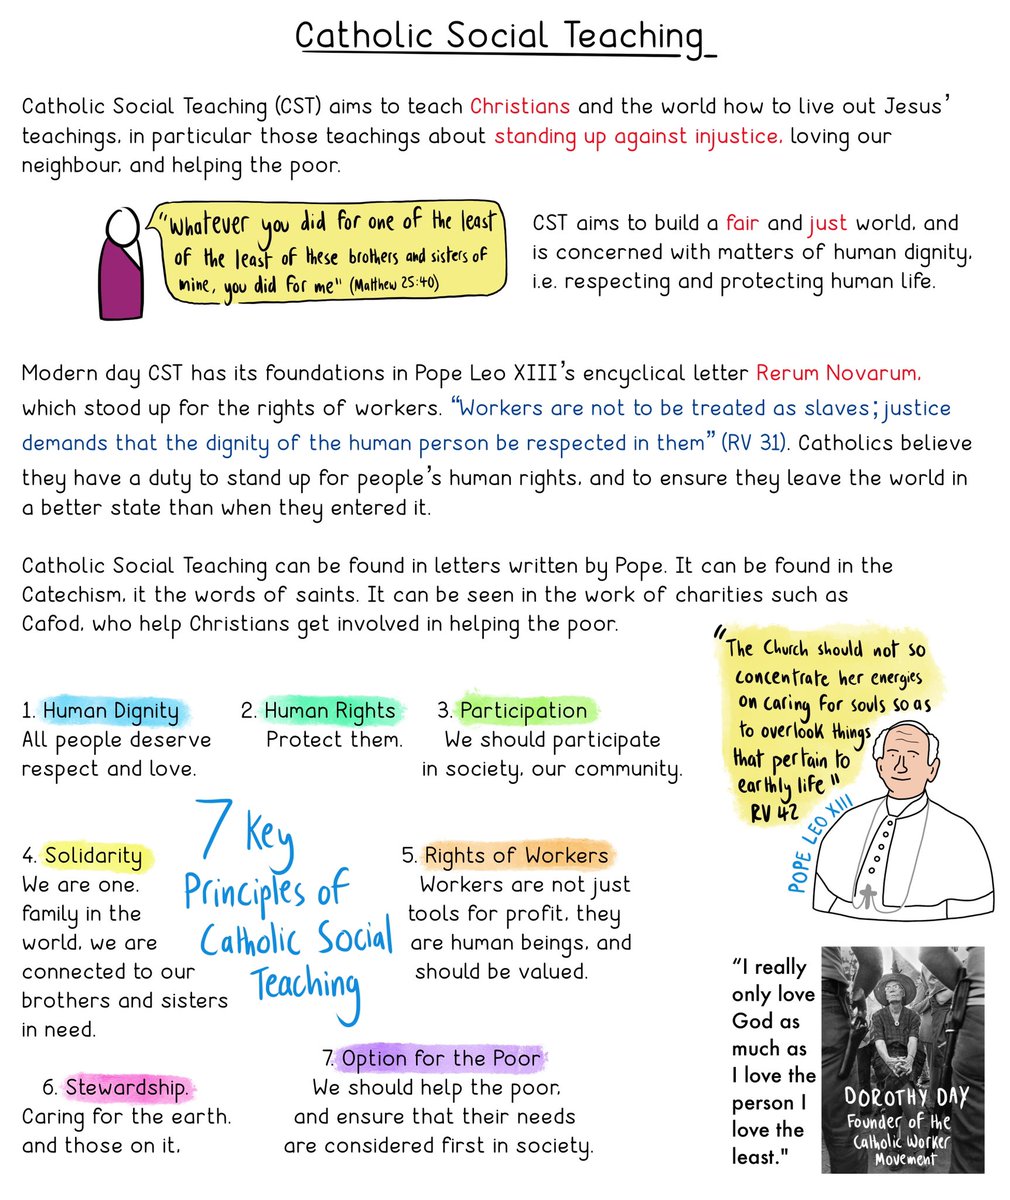 Catholic Social Teaching
Catholic Social Teaching (CST) aims to teach Christians and the world how to live out Jesus'
teachings, in particular those teachings about standing up against injustice, loving our
neighbour, and helping the poor.
"Whatever you did for one of the least
of the least of these brothers and sisters of
mine, you did for me" (Matthew 25:40)
CST aims to build a fair and just world, and
is concerned with matters of human dignity,
i.e. respecting and protecting human life.
Modern day CST has its foundations in Pope Leo XIII's encyclical letter Rerum Novarum,
which stood up for the rights of workers. "Workers are not to be treated as slaves; justice
demands that the dignity of the human person be respected in them" (RV 31). Catholics believe
they have a duty to stand up for people's human rights, and to ensure they leave the world in
a better state than when they entered it.
Catholic Social Teaching can be found in letters written by Pope. It can be found in the
Catechism, it the words of saints. It can be seen in the work of charities such as
Cafod, who help Christians get involved in helping the poor.
"The Church should not so
concentrate her energies
on caring for souls so as
to overlook things
that pertain to
earthly life"
RV 42
POPE LEO XIII
1. Human Dignity
All people deserve
respect and love.
2. Human Rights
Protect them.
3. Participation
We should participate
in society, our community.
7 Key
Principles of
Catholic Social
Teaching
4. Solidarity
We are one.
family in the
world, we are
connected to our
brothers and sisters
in need.
5. Rights of Workers
Workers are not just
tools for profit, they
are human beings, and
should be valued.
6. Stewardship.
Caring for the earth.
and those on it,
7. Option for the Poor
We should help the poor,
and ensure that their needs
are considered first in society.
"I really
only love
God as
much as
I love the
person I
love the
least."
DOROTHY DAY
Founder of the
Catholic Worker
Movement